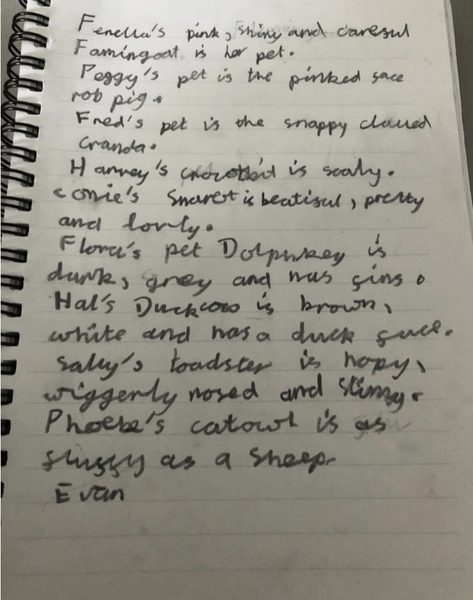 Fenella's pink, shiny and caresul
Famingoat is her pet.
Peggy's pet is the pinked sace
rob pig.
Fred's pet is the snappy clawed
cranda.
Harvey's crocobid is scaly.
conie's Snarest is beatisul, pretty
and lovly.
Flora's pet Dolphkey is
dunk, grey and has sins.
Hal's Duckcow is brown,
white and has a duck sace.
sally's toadster is hopy,
wiggerly nosed and slimy.
Phoebe's catowl is as
slussy as a sheep.
Evan